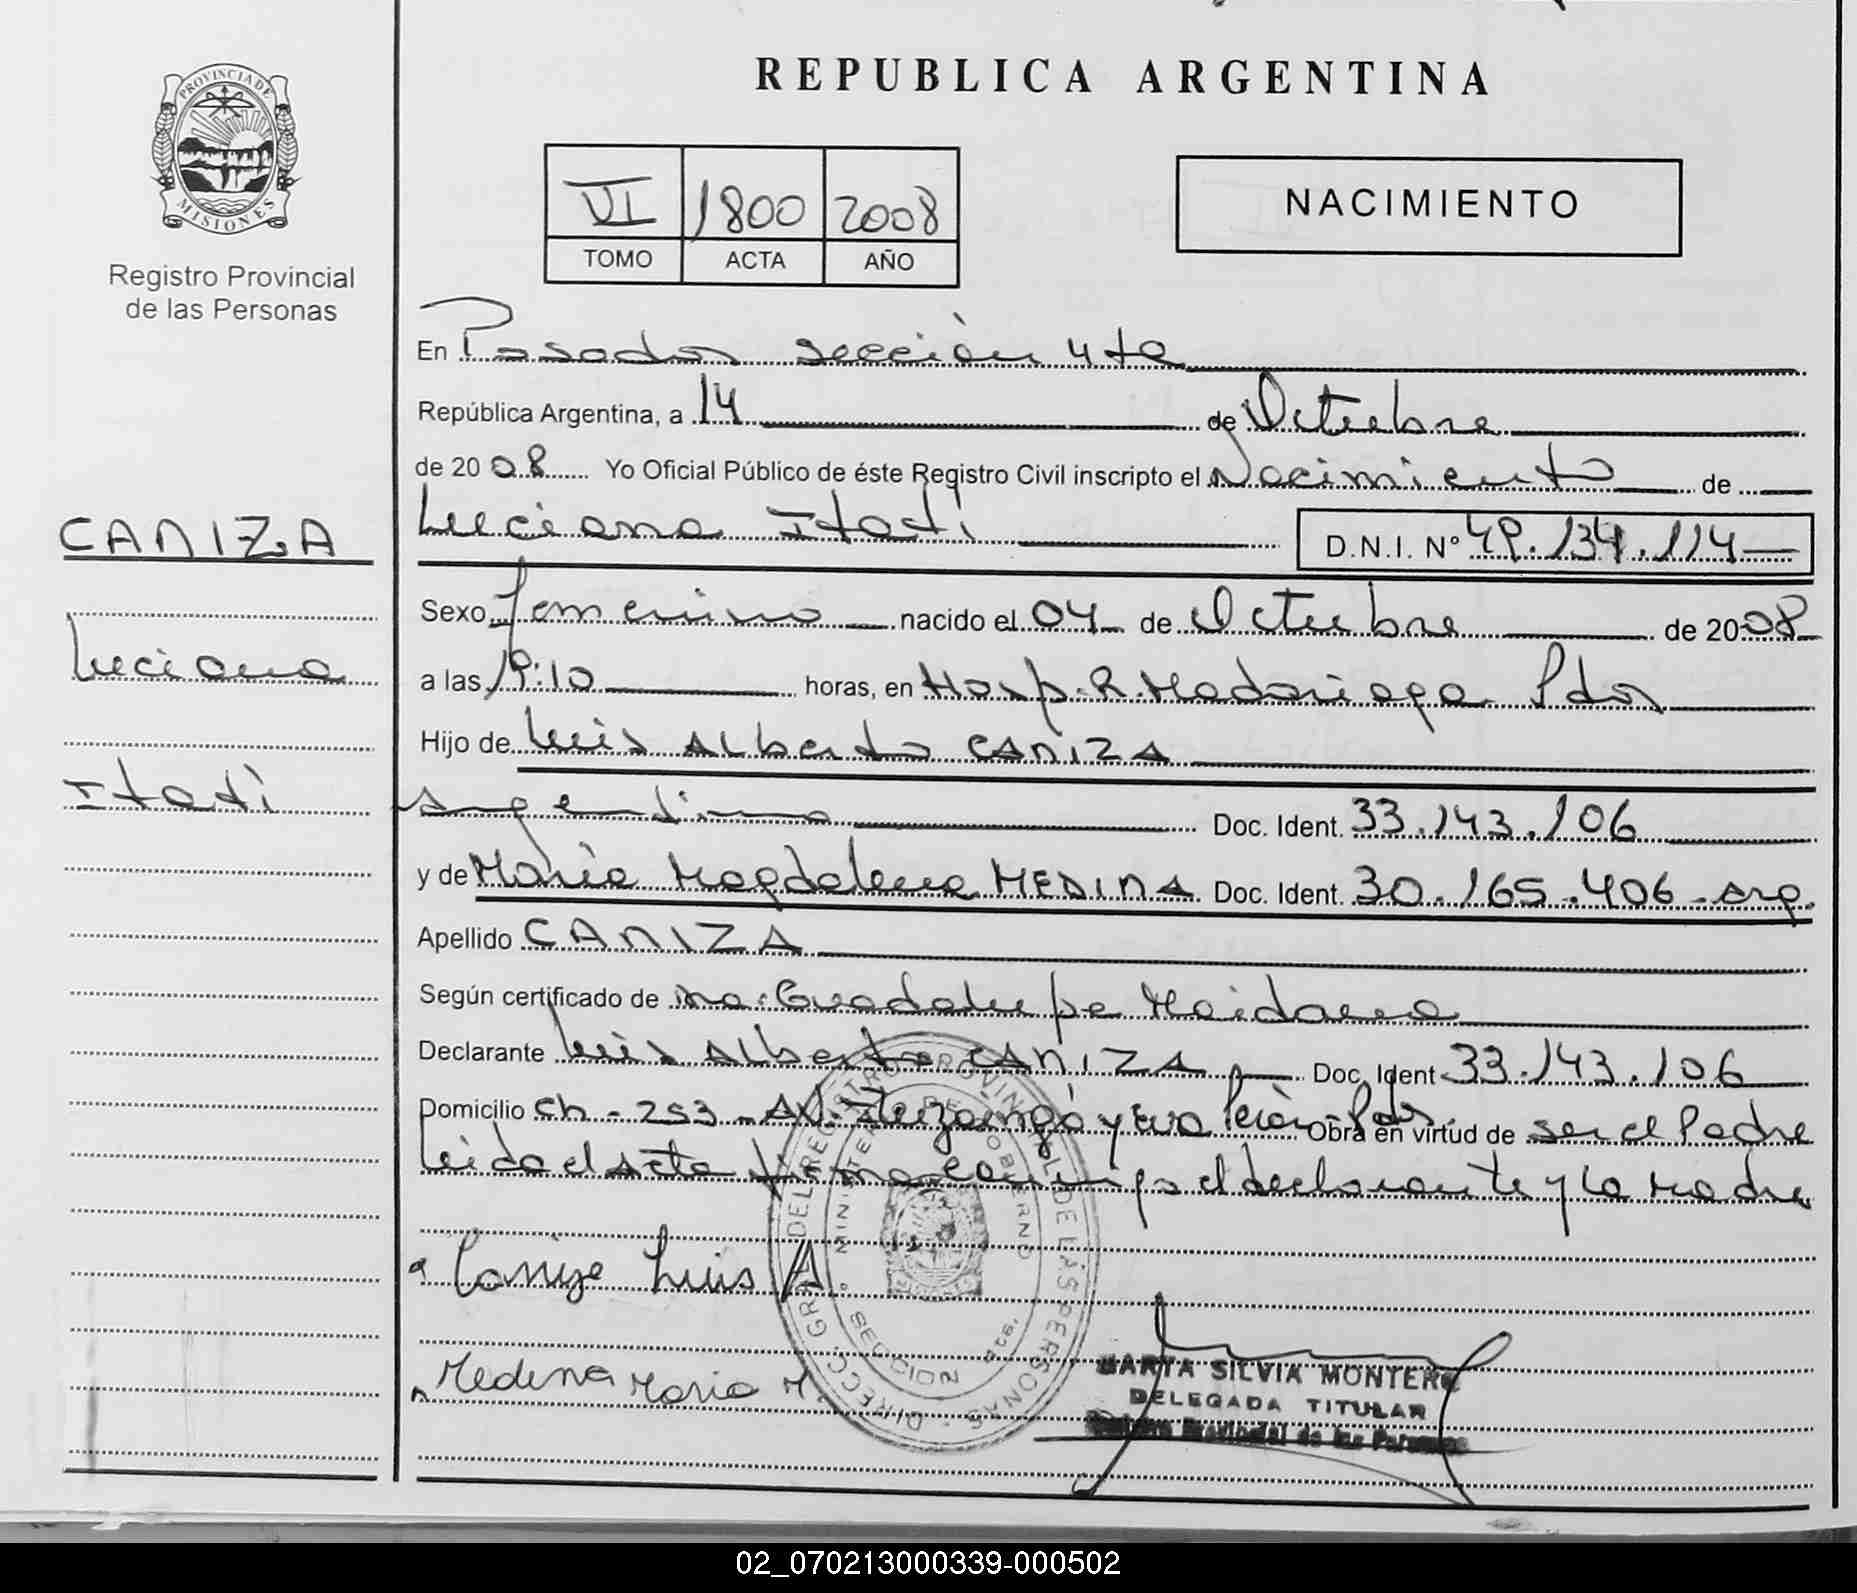 REPUBLICA ARGENTINA
PROVINCIA DE MISIONES
Registro Provincial
de las Personas
VI 1800 2008
TOMO ACTA AÑO
NACIMIENTO
En Posadas sección 4ta
República Argentina, a 14 de Octubre
de 2008 Yo Oficial Público de éste Registro Civil inscripto el Nacimiento de
Luciana Itatí
D.N.I. Nº 49.134.114
CANIZA
Luciana
Itatí
Sexo femenino nacido el 04 de Octubre de 2008
a las 19:10 horas, en Hosp. R. Madariaga Pdas
Hijo de Luis Alberto CANIZA
argentino Doc. Ident. 33.143.106
y de María Magdalena MEDINA Doc. Ident. 30.165.406 - arg.
Apellido CANIZA
Según certificado de Ma. Guadalupe Maidana
Declarante Luis Alberto CANIZA Doc. Ident 33.143.106
Domicilio Ch - 253 - AV. Ituzaingó y Eva Perón - Pdas. Obra en virtud de ser el Padre
leida el Acta firma conmigo el declarante y la madre
Caniza Luis A
Medina Maria M.
DIRECC. GRAL. DEL REGISTRO PROVINCIAL DE LAS PERSONAS
MINISTERIO DE GOBIERNO
SECCION 4ta.
MARTA SILVIA MONTERO
DELEGADA TITULAR
Registro Provincial de las Personas
02_070213000339-000502